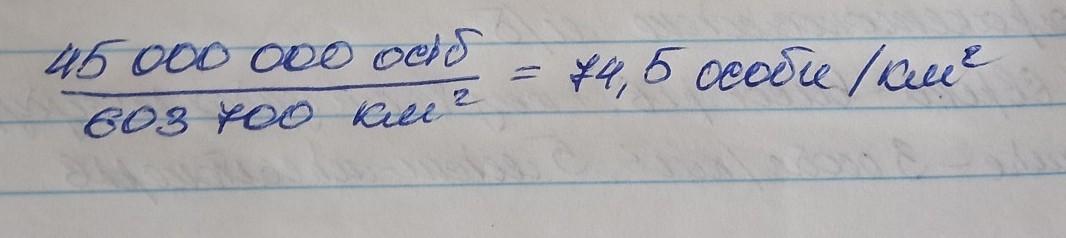 45 000 000 осіб
603 700 км² = 74,5 особи/км²